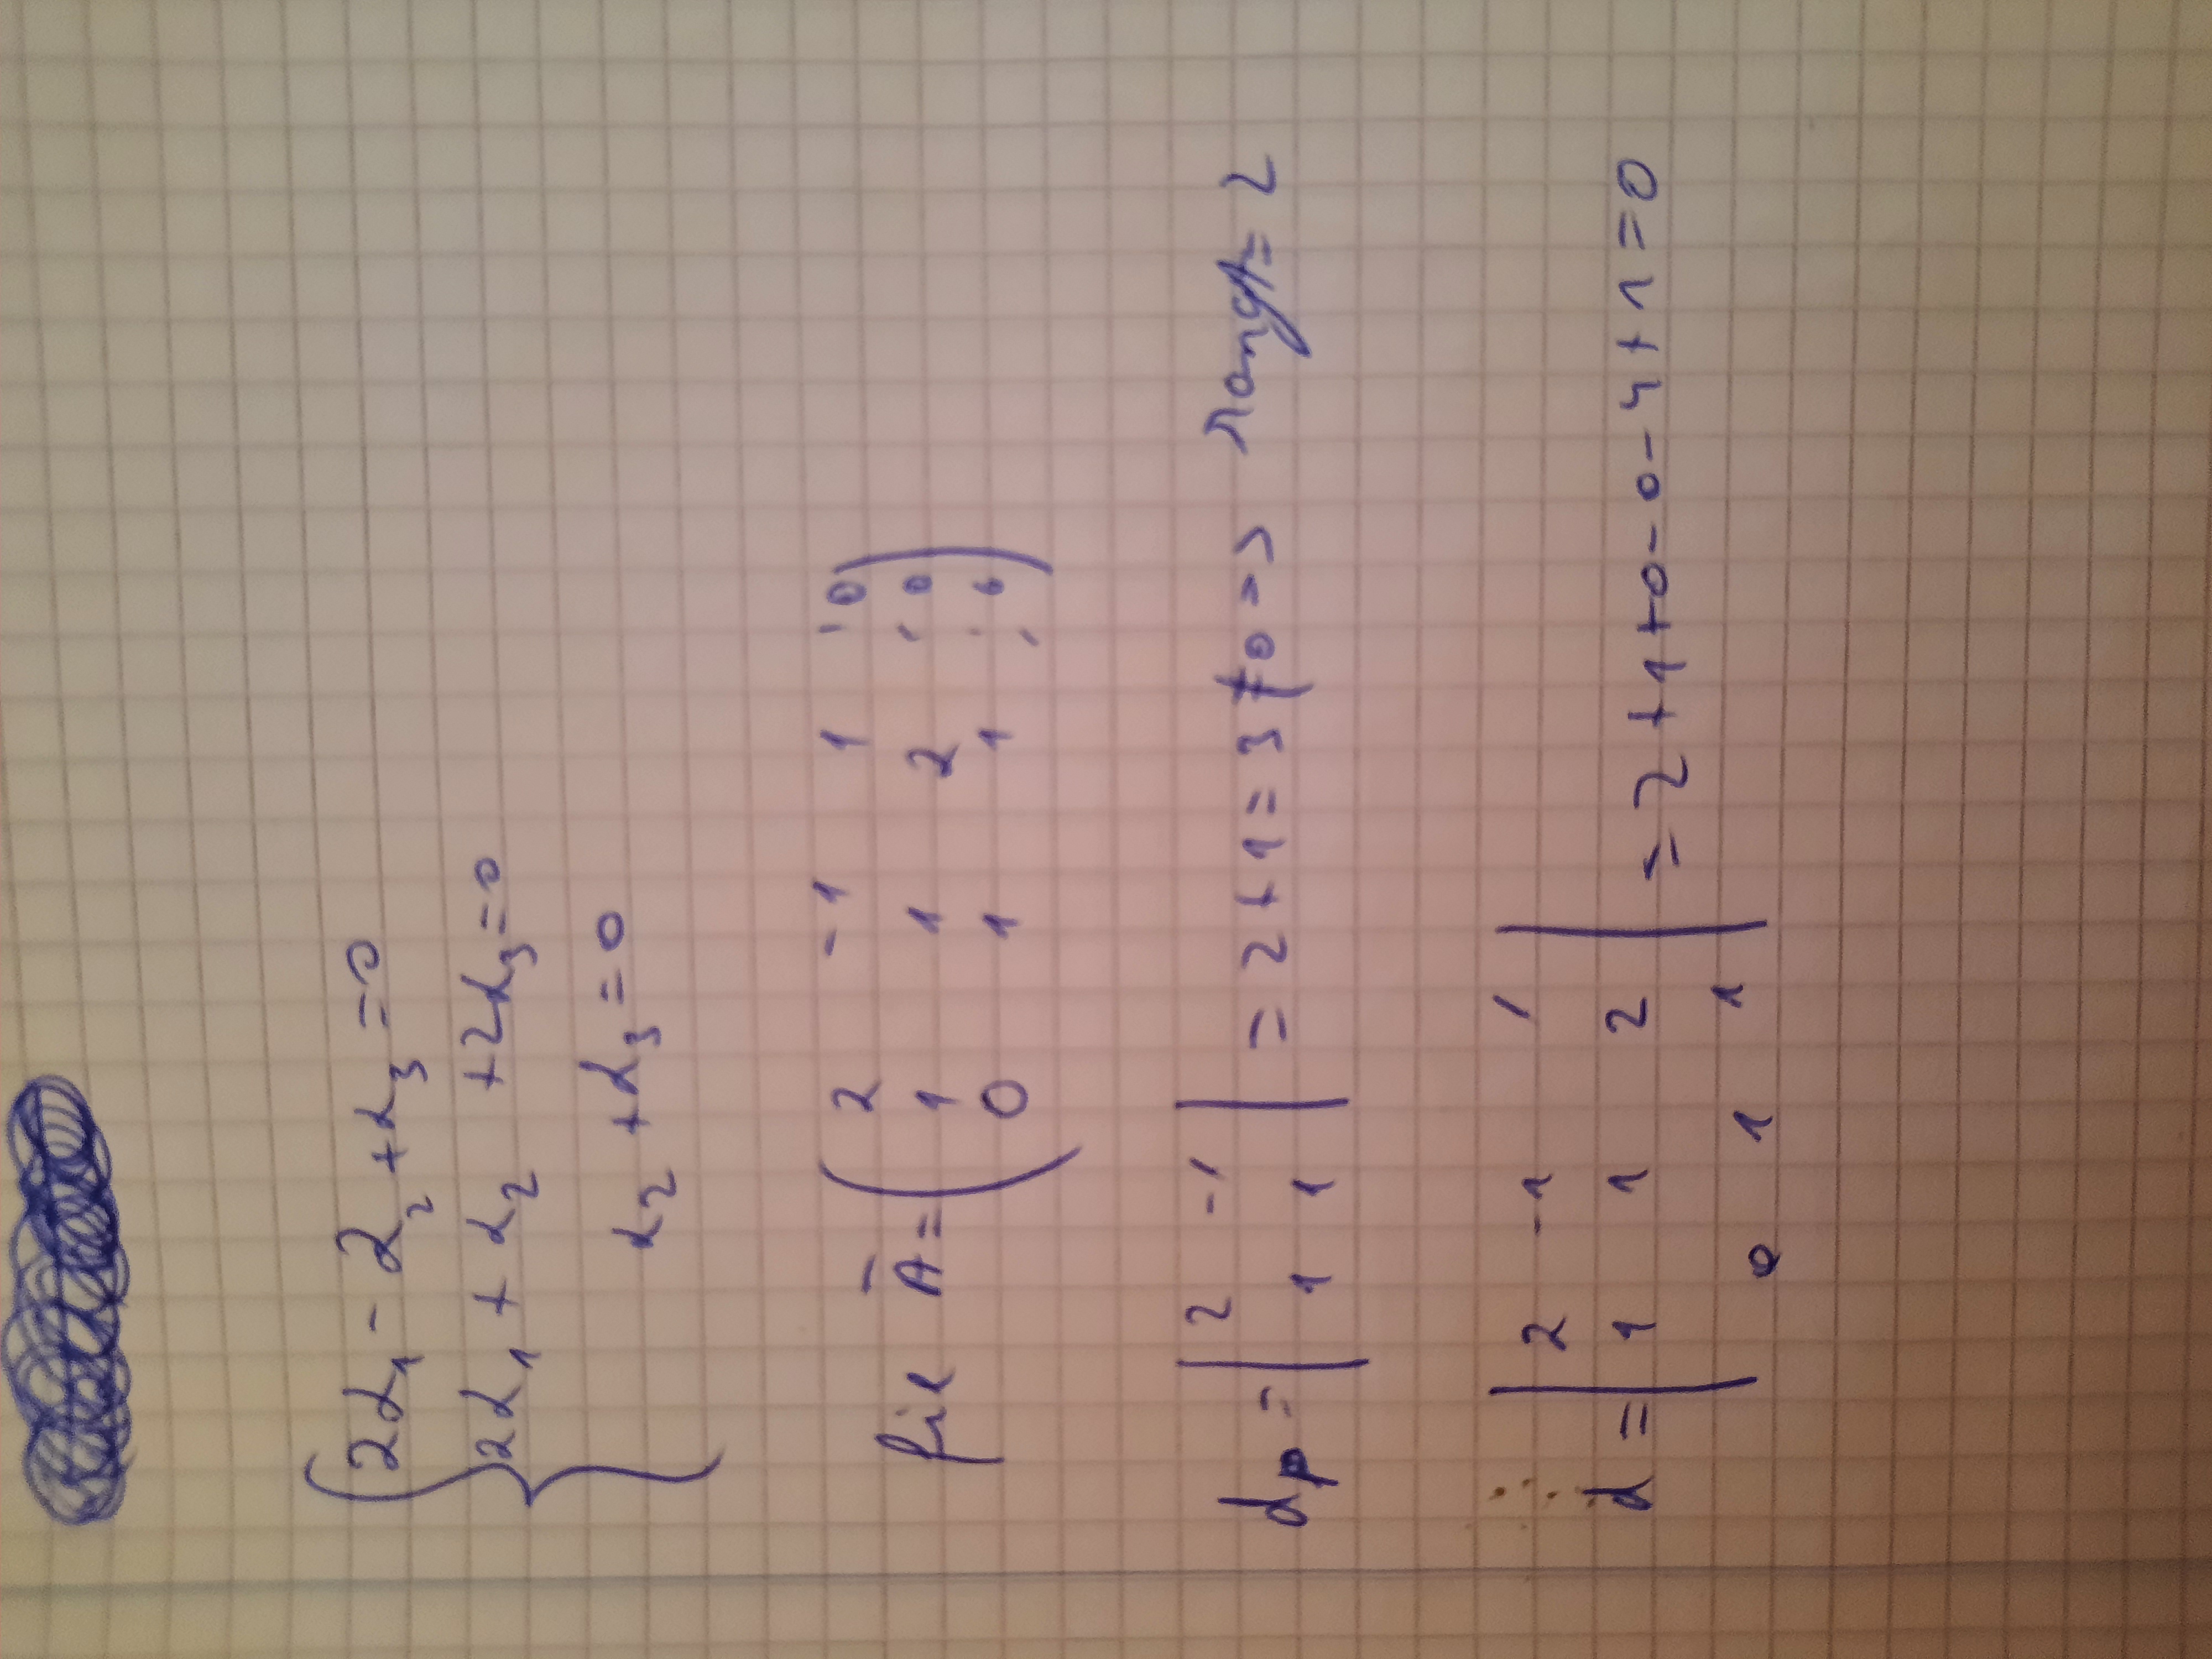 2α₁ - α₂ + α₃ = 0
2α₁ + α₂ + 2α₃ = 0
α₂ + α₃ = 0
fie Ā = ( 2 -1 1 ¦ 0
1 1 2 ¦ 0
0 1 1 ¦ 0 )
dp = | 2 -1
1 1 | = 2 + 1 = 3 ≠ 0 => rangA = 2
d = | 2 -1 1
1 1 2
0 1 1 | = 2 + 1 + 0 - 0 - 4 + 1 = 0